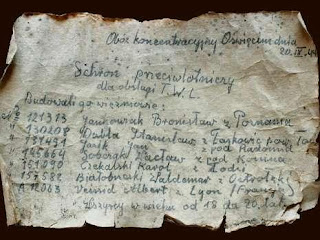 Obóz koncentracyjny Oświęcim dnia
20.IX.44
Schron przeciwlotniczy
dla obsługi T.W.L.
Budowali go więźniowie:
No 121313 Jankowiak Bronisław z Poznania
" 130208 Dubla Stanisław z Łaskowic pow. Tar
" 131491 Jasik Jan z pod Radomia
" 145664 Sobczak Wacław z pod Konina
" Czekalski Karol z Łodzi
" 157582 Białobrzeski Waldemar z Ostrołęki
" A 12063 Veissid Albert z Lyon (Francj)
Wszyscy w wieku od 18 do 20 lat